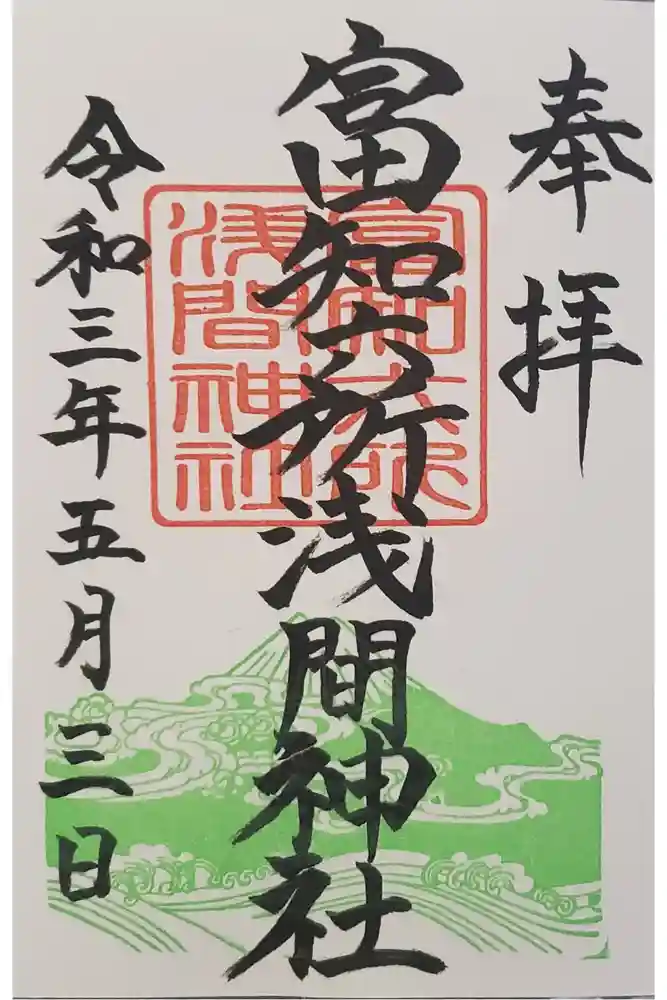 奉拝
富知六所浅間神社
令和三年五月三日
富知六所
浅間神社